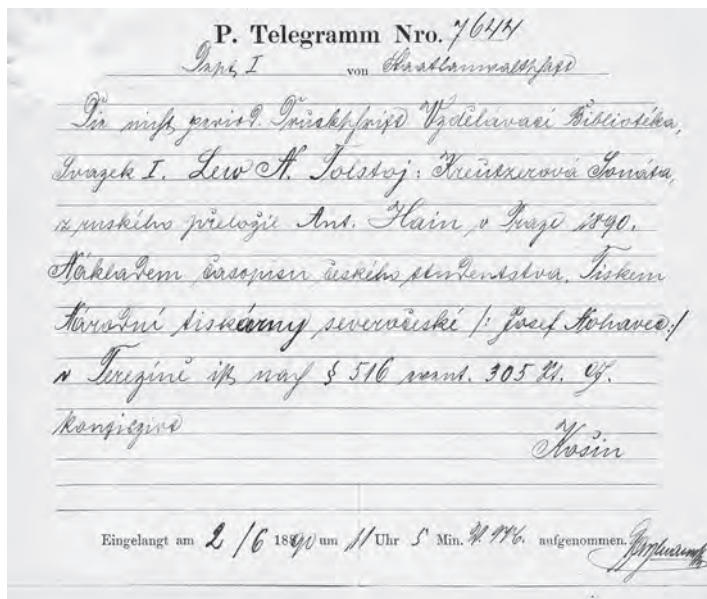 P. Telegramm Nro. 7644
Dept I von Staatsanwaltschaft
Die nicht period. Druckschrift Vzdělávací Bibliotéka,
Svazek I. Lew N. Tolstoj: Kreutzerová Sonáta,
z ruského přeložil Ant. Hain v Praze 1890.
Nákladem časopisu českého studentstva. Tiskem
Národní tiskárny severočeské /: Josef Mohavec :/
v Terezíně ist nach § 516 event. 305 St. G.
konfiszirt
Košin
Eingelangt am 2/6 1890 um 11 Uhr 5 Min. V. M. aufgenommen.